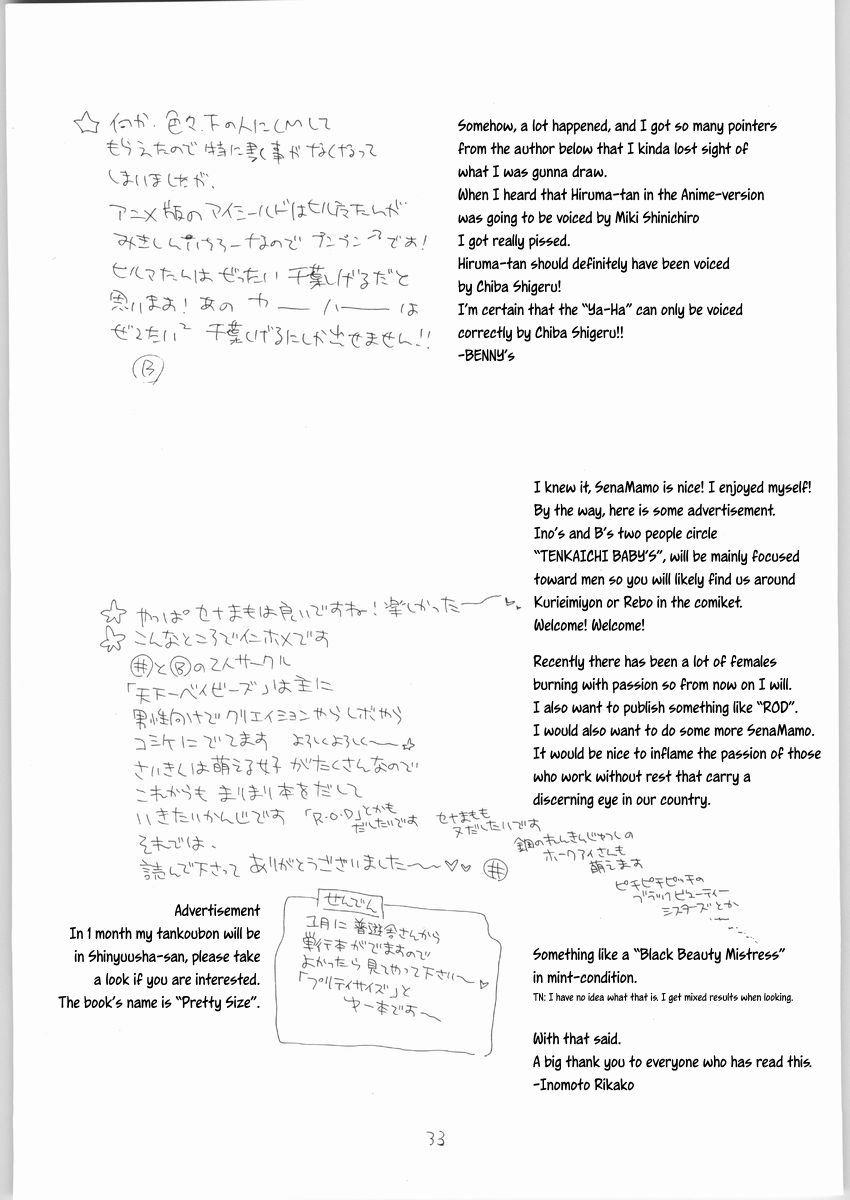 ☆ 何か、色々、下の人にCMして
もらえたので 特に書く事がなくなって
しまいましたが、
アニメ版のアイシールドはヒルマたんが
みきしんいちろーなので プンプンです!
ヒルマたんは ぜったい 千葉しげるだと
思います! あの ヤーーハーーは
ぜったい² 千葉しげるにしか出せません!!
Ⓑ
Somehow, a lot happened, and I got so many pointers
from the author below that I kinda lost sight of
what I was gunna draw.
When I heard that Hiruma-tan in the Anime-version
was going to be voiced by Miki Shinichiro
I got really pissed.
Hiruma-tan should definitely have been voiced
by Chiba Shigeru!
I'm certain that the "Ya-Ha" can only be voiced
correctly by Chiba Shigeru!!
-BENNY's
I knew it, SenaMamo is nice! I enjoyed myself!
By the way, here is some advertisement.
Ino's and B's two people circle
"TENKAICHI BABY'S", will be mainly focused
toward men so you will likely find us around
Kurieimiyon or Rebo in the comiket.
Welcome! Welcome!
Recently there has been a lot of females
burning with passion so from now on I will.
I also want to publish something like "ROD".
I would also want to do some more SenaMamo.
It would be nice to inflame the passion of those
who work without rest that carry a
discerning eye in our country.
☆ やっぱ セナまもは良いですね! 楽しかったー
☆ こんなところで
とⒷの2人サークル
「天下一ベイビーズ」は主に
男性向けで クリエイションやらレボやら
コミケに でてます よろしくよろしく〜☆
さいきんは萌える女子 がたくさんなので
これからも まりまり本をだして
いきたいかんじです 「R・O・D」とかも
だしたいです セナまもも
又だしたいです
鋼のれんきんじゅつしの
ホークアイさんも
萌えます
ピチピチピッチの
ブラックビューティー
シスターズとか
それでは、
読んで下さって ありがとうございました〜〜♡♡
Advertisement
In 1 month my tankoubon will be
in Shinyuusha-san, please take
a look if you are interested.
The book's name is "Pretty Size".
せんでん
1月に 普遊舎さんから
単行本がでますので
よかったら 見てやって下さい〜♡
「プリティサイズ」と
ゆー本です〜
Something like a "Black Beauty Mistress"
in mint-condition.
TN: I have no idea what that is. I get mixed results when looking.
With that said.
A big thank you to everyone who has read this.
-Inomoto Rikako
33